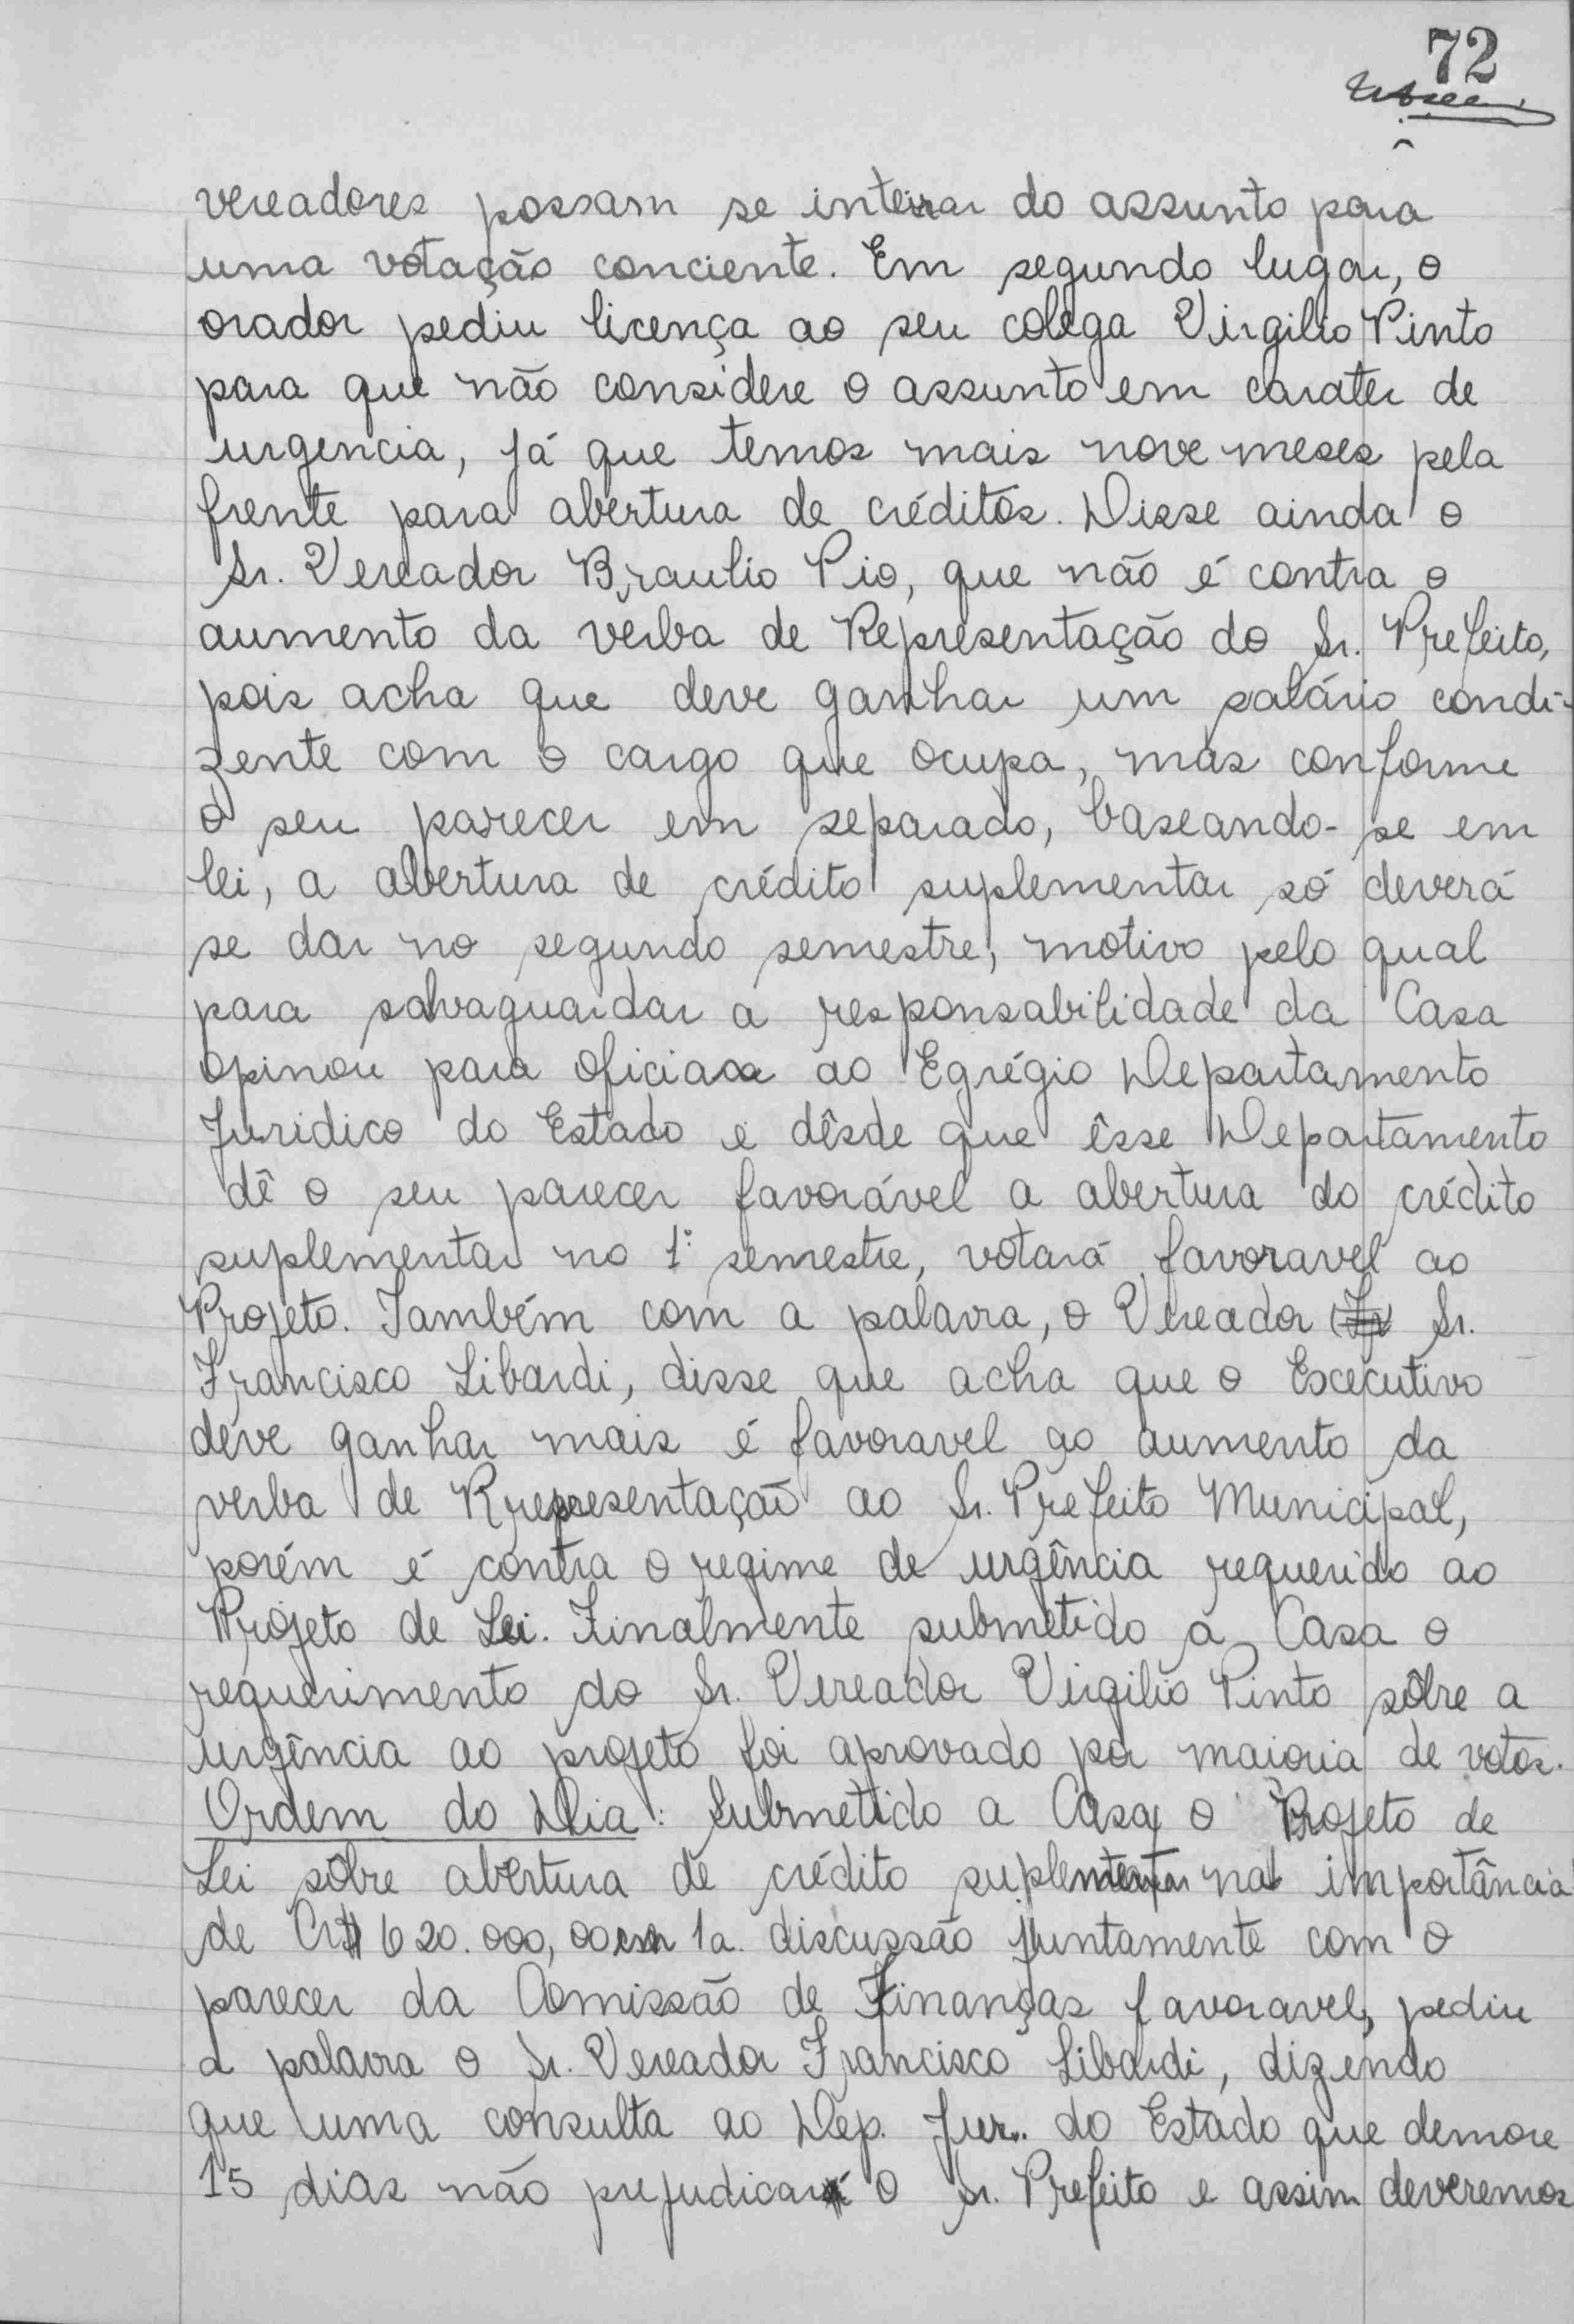 72
vereadores possam se inteirar do assunto para
uma votação conciente. Em segundo lugar, o
orador pediu licença ao seu colega Virgilio Pinto
para que não considere o assunto em carater de
urgencia, já que temos mais nove meses pela
frente para abertura de créditos. Disse ainda o
Sr. Vereador Braulio Pio, que não é contra o
aumento da verba de Representação do Sr. Prefeito,
pois acha que deve ganhar um salário condi-
zente com o cargo que ocupa, mas conforme
o seu parecer em separado, baseando-se em
lei, a abertura de crédito suplementar só deverá
se dar no segundo semestre, motivo pelo qual
para salvaguardar a responsabilidade da Casa
opinou para oficiar ao Egrégio Departamento
Juridico do Estado e dêsde que êsse Departamento
dê o seu parecer favorável a abertura do crédito
suplementar no 1º semestre, votará favoravel ao
Projeto. Também com a palavra, o Vereador Sr.
Francisco Libardi, disse que acha que o Executivo
deve ganhar mais é favoravel ao aumento da
verba de Representação ao Sr. Prefeito Municipal,
porém é contra o regime de urgência requerido ao
Projeto de Lei. Finalmente submetido a Casa o
requerimento do Sr. Vereador Virgilio Pinto sôbre a
urgência ao projeto foi aprovado por maioria de votos.
Ordem do Dia: Submetido a Casa o Projeto de
Lei sôbre abertura de crédito suplementar na importância
de Cr$ 620.000,00 em 1a. discussão juntamente com o
parecer da Comissão de Finanças favoravel, pediu
a palavra o Sr. Vereador Francisco Libardi, dizendo
que uma consulta ao Dep. Jur. do Estado que demore
15 dias não prejudicará o Sr. Prefeito e assim deveremos